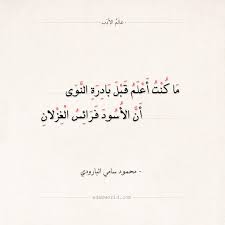 عالم الأدب
مَا كُنْتُ أَعْلَمُ قَبْلَ بَادِرَةِ النَّوَى
أَنَّ الأُسُودَ فَرَائِسُ الْغِزْلَانِ
- محمود سامي البارودي -
adabworld.com